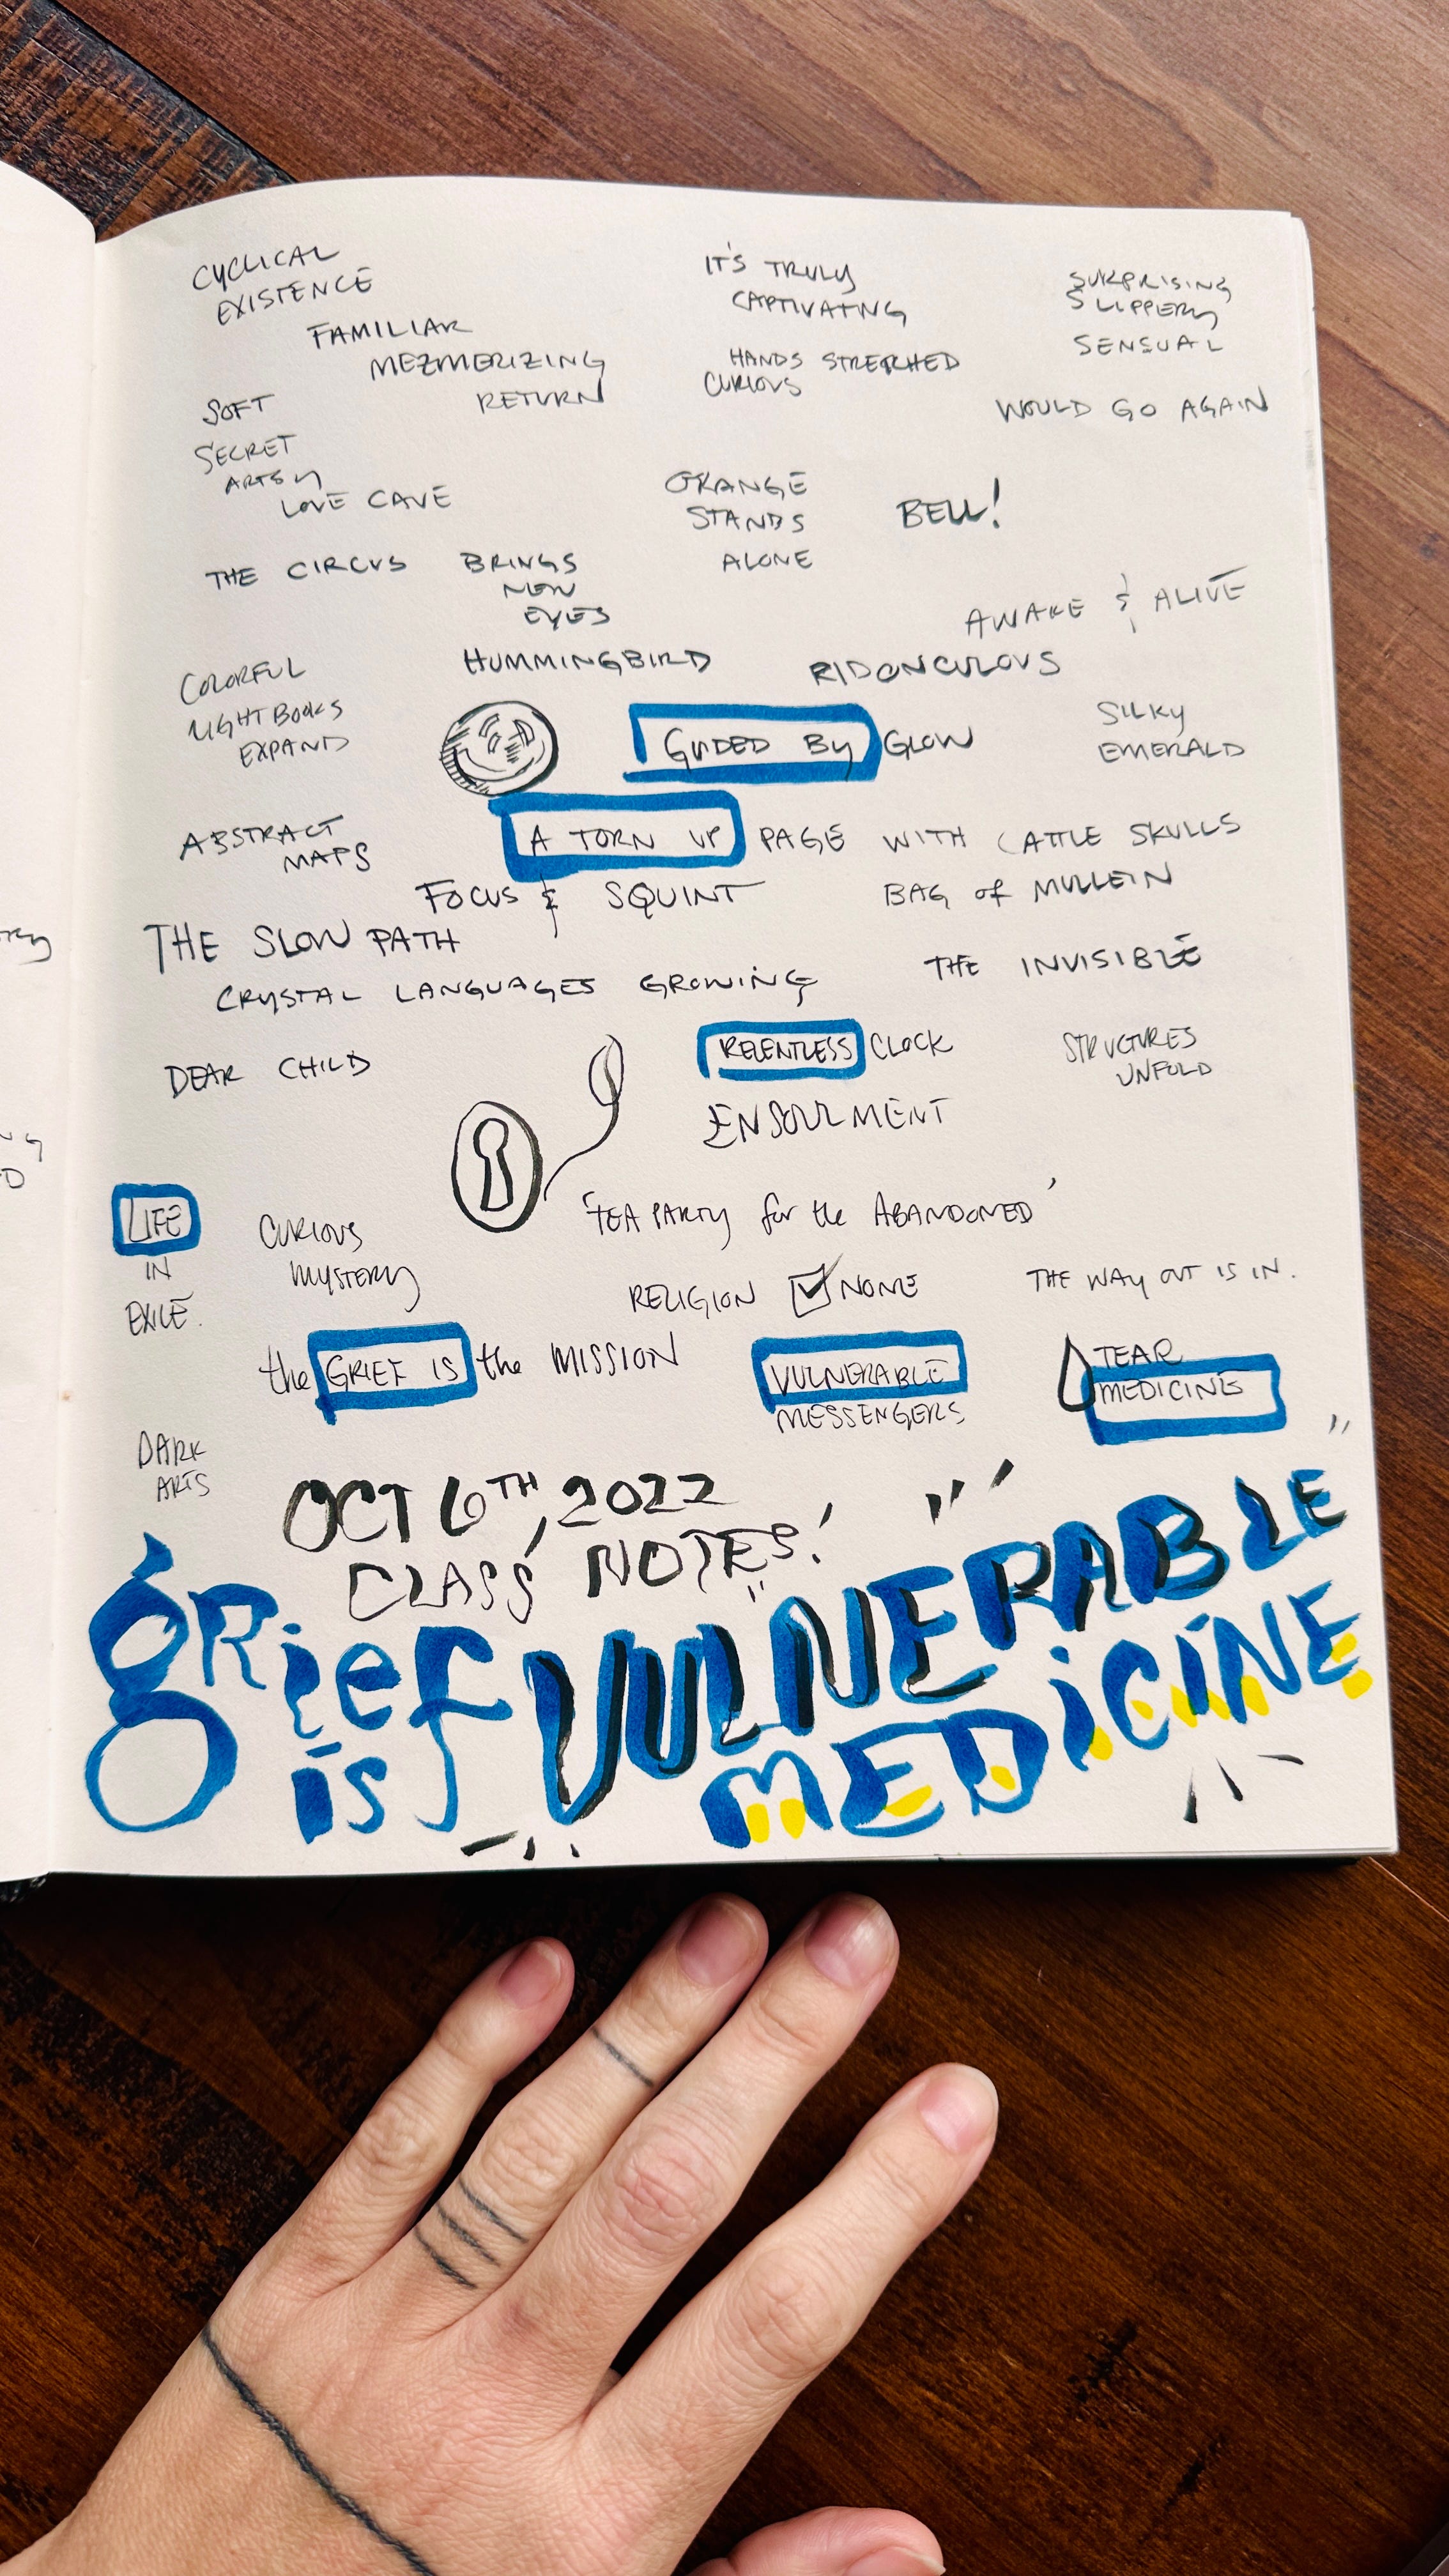 CYCLICAL
EXISTENCE
FAMILIAR
MEZMERIZING
RETURN
IT'S TRULY
CAPTIVATNG
HANDS STRETCHED
CURIOUS
SURPRISING
SLIPPERY
SENSUAL
WOULD GO AGAIN
SOFT
SECRET
ARTSY
LOVE CAVE
ORANGE
STANDS
ALONE
BELL!
THE CIRCUS BRINGS
NEW
EYES
AWAKE & ALIVE
HUMMINGBIRD
RIDONCULOUS
COLORFUL
LIGHT BOOKS
EXPAND
GUIDED BY GLOW
SILKY
EMERALD
ABSTRACT
MAPS
A TORN UP PAGE WITH CATTLE SKULLS
FOCUS & SQUINT
BAG of MULLEIN
THE SLOW PATH
CRYSTAL LANGUAGES GROWING
THE INVISIBLE
DEAR CHILD
RELENTLESS CLOCK
STRUCTURES
UNFOLD
ENSOULMENT
LIFE
IN
EXILE.
CURIOUS
MYSTERY
'TEA PARTY for the ABANDONED'
RELIGION NONE
THE WAY OUT IS IN.
the GRIEF IS the MISSION
VULNERABLE
MESSENGERS
TEAR
MEDICINE
DARK
ARTS
OCT 6TH, 2022
CLASS NOTES!
gRief
is
VULNERABLE
MEDiCiNE